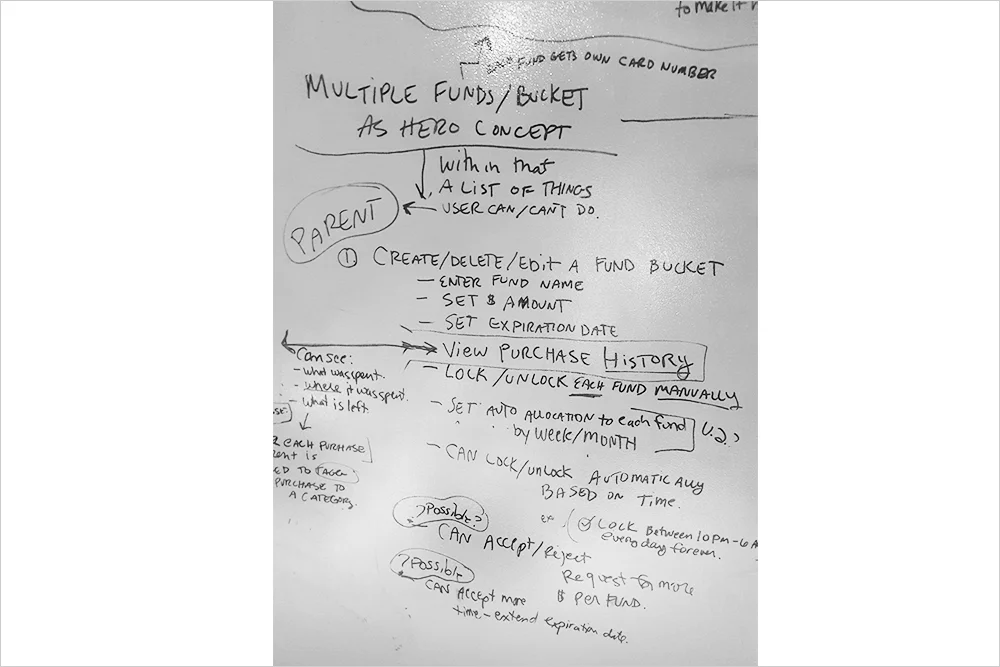 to make it
FUND GETS OWN CARD NUMBER
MULTIPLE FUNDS/BUCKET
AS HERO CONCEPT
Within that
A LIST OF THINGS
USER CAN/CAN'T DO.
PARENT
① CREATE/DELETE/Edit A FUND BUCKET
— ENTER FUND NAME
— SET $ AMOUNT
— SET EXPIRATION DATE
View PURCHASE HISTORY
— LOCK/UNLOCK EACH FUND MANUALLY
Can see:
- what was spent.
- where it was spent.
- what is left
— SET AUTO ALLOCATION to each fund
by week/MONTH
EACH PURCHASE
PURCHASE TO
A CATEGORY.
— CAN LOCK/unlock AUTOMATICAlly
BASED ON TIME.
ex. LOCK BETWEEN 10PM-6A
everyday forever.
?Possible?
CAN ACCEPT/Reject
Request for more
$ PER FUND.
?Possible
CAN ACCEPT more
time - extend expiration date.